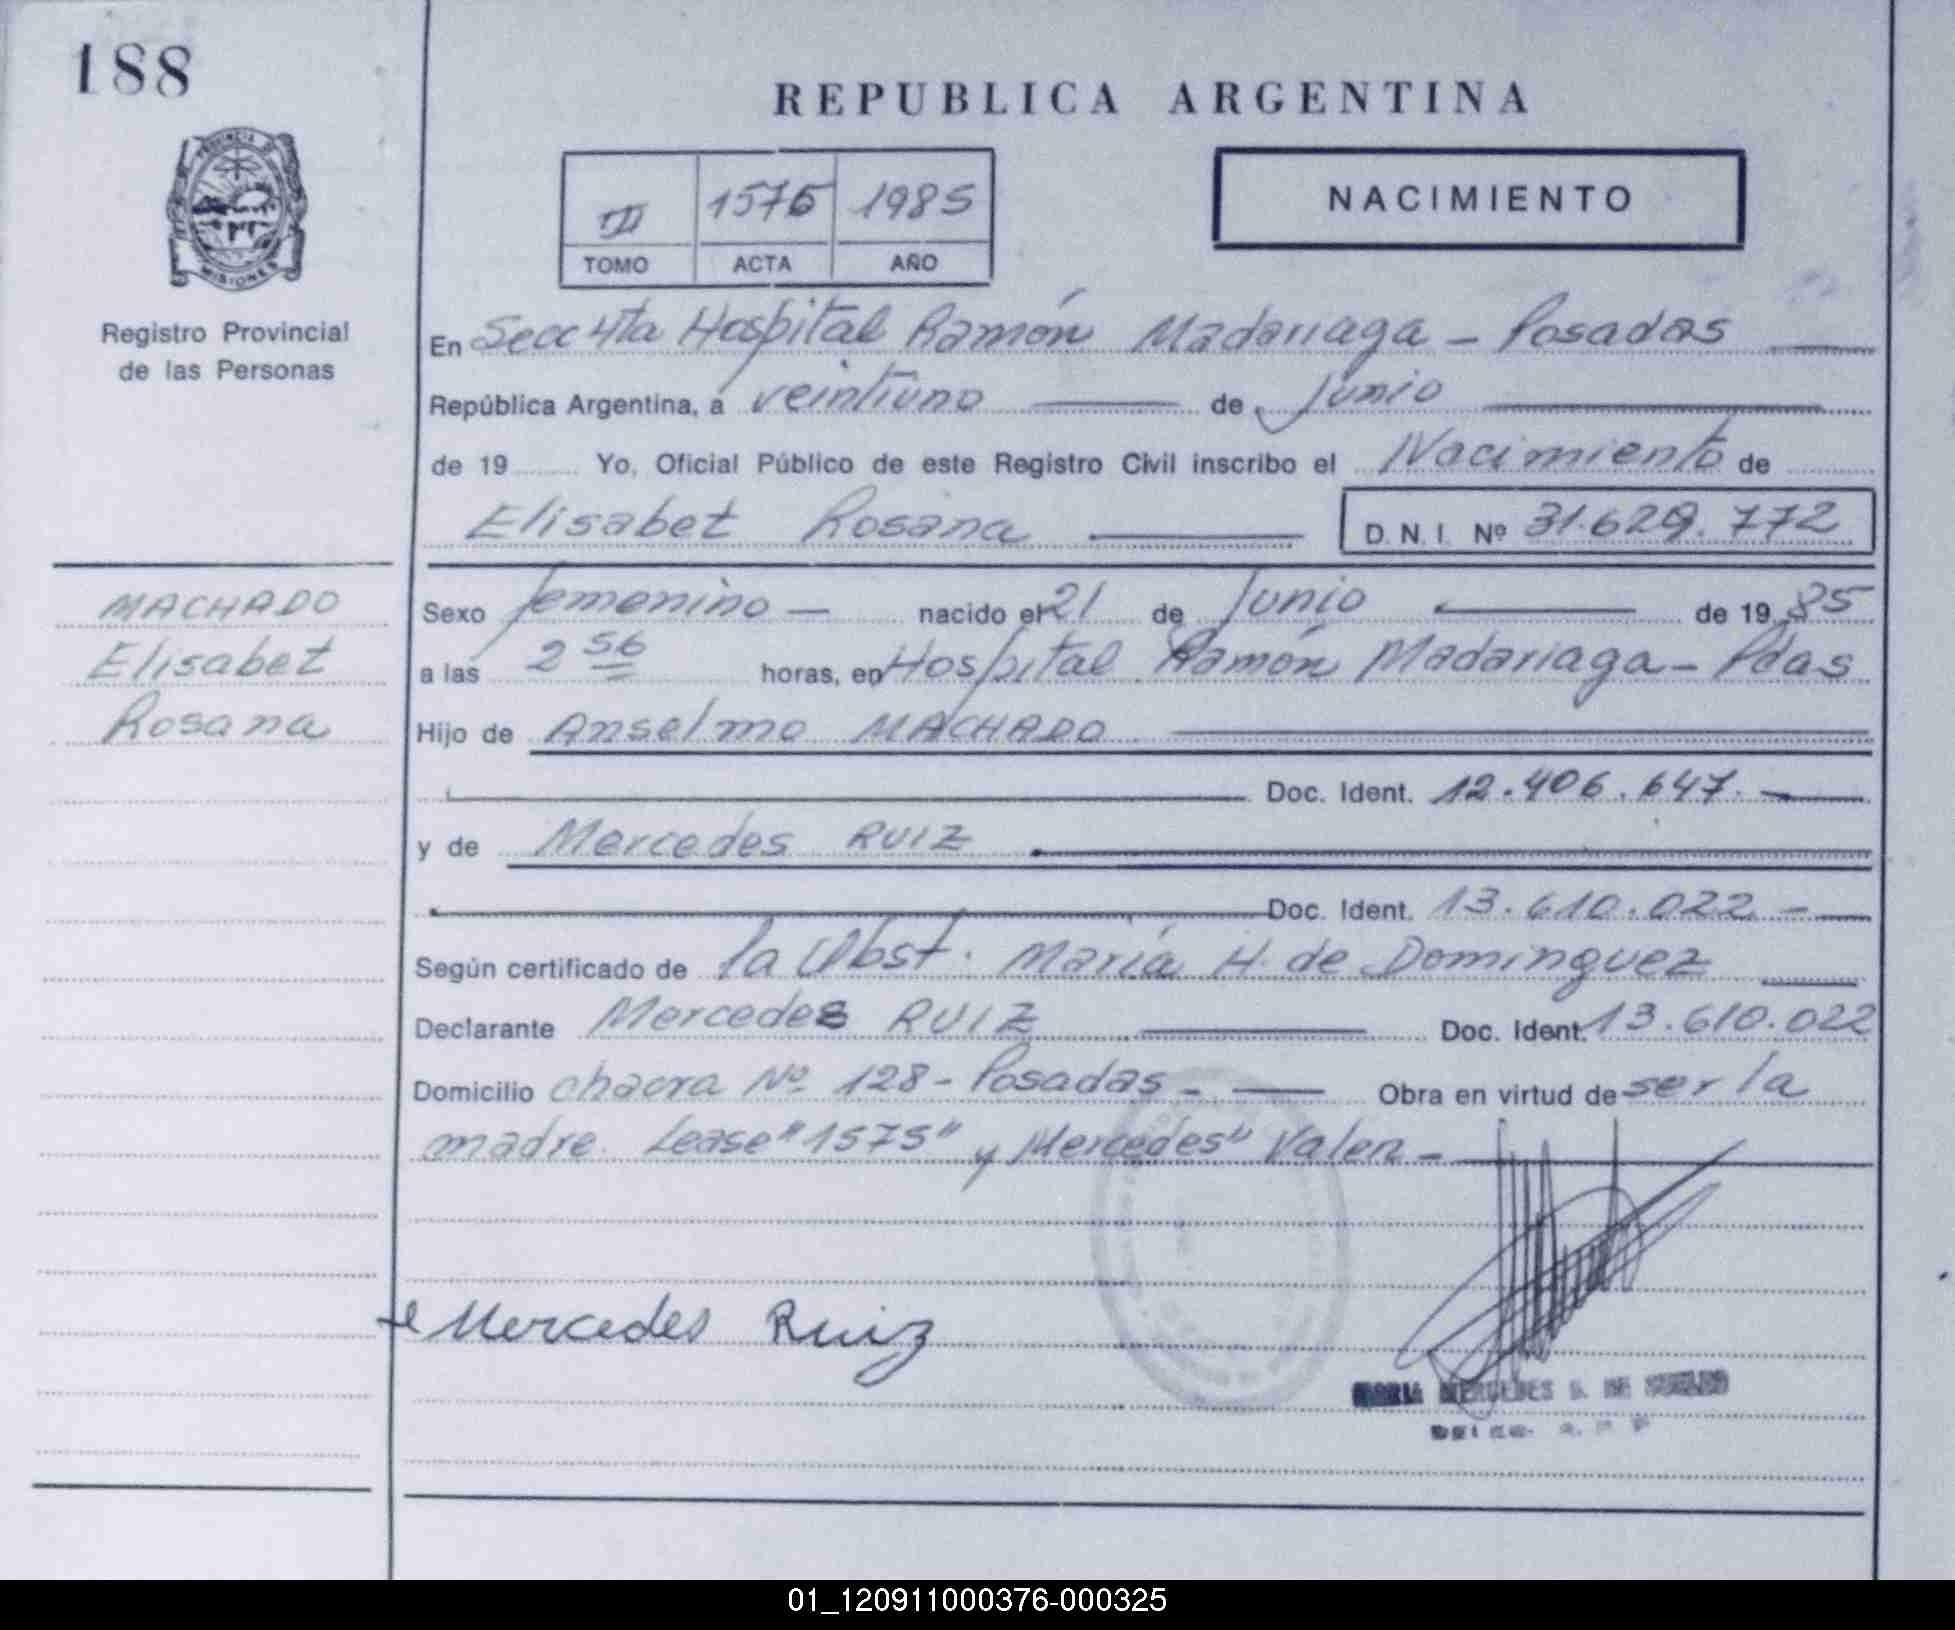 188
REPUBLICA ARGENTINA
III 1575 1985
TOMO ACTA AÑO
NACIMIENTO
PROVINCIA DE
MISIONES
Registro Provincial
de las Personas
En Secc 4ta Hospital Ramón Madariaga - Posadas
República Argentina, a veintiuno de Junio
de 19 Yo, Oficial Público de este Registro Civil inscribo el Nacimiento de
Elisabet Rosana D. N. I. Nº 31.629.772
MACHADO
Elisabet
Rosana
Sexo femenino - nacido el 21 de Junio de 19 85
a las 2 56 horas, en Hospital Ramón Madariaga - Pdas
Hijo de Anselmo MACHADO
Doc. Ident. 12.406.647.
y de Mercedes RUIZ
Doc. Ident. 13.610.022 -
Según certificado de la Obst. María H. de Dominguez
Declarante Mercedes RUIZ Doc. Ident. 13.610.022
Domicilio chacra Nº 128 - Posadas - Obra en virtud de ser la
madre. Lease "1575" y Mercedes" Valen -
Mercedes Ruiz
MARIA MERCEDES DE
01_120911000376-000325